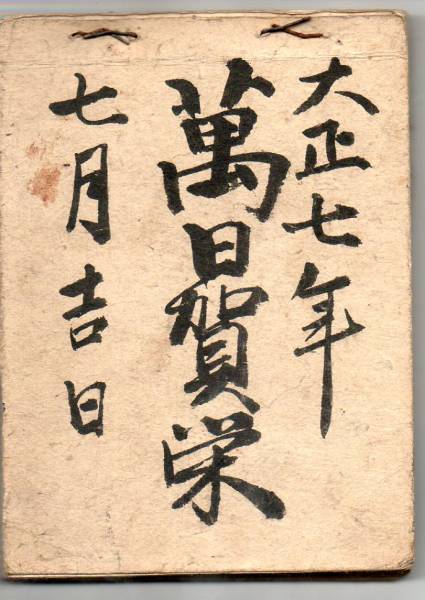 大正七年
萬日賀栄
七月吉日